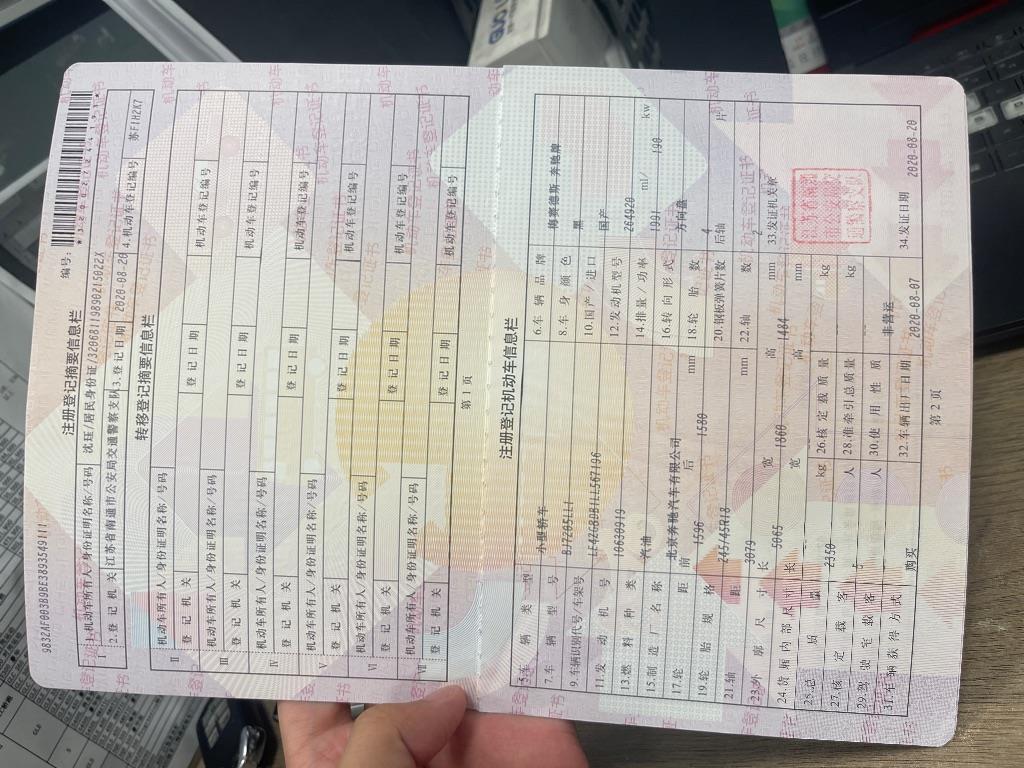 9832AF003B9BE3893543111
注册登记摘要信息栏
编号:
Ⅰ 1.机动车所有人/身份证明名称/号码 沈珏/居民身份证/32068119890216022X
2.登记机关 江苏省南通市公安局交通警察支队 3.登记日期 2020-08-20 4.机动车登记编号 苏F1H2X7
转移登记摘要信息栏
Ⅱ 机动车所有人/身份证明名称/号码
登记机关 登记日期 机动车登记编号
Ⅲ 机动车所有人/身份证明名称/号码
登记机关 登记日期 机动车登记编号
Ⅳ 机动车所有人/身份证明名称/号码
登记机关 登记日期 机动车登记编号
Ⅴ 机动车所有人/身份证明名称/号码
登记机关 登记日期 机动车登记编号
Ⅵ 机动车所有人/身份证明名称/号码
登记机关 登记日期 机动车登记编号
Ⅶ 机动车所有人/身份证明名称/号码
登记机关 登记日期 机动车登记编号
第 1 页
注册登记机动车信息栏
5.车辆类型 小型轿车 6.车辆品牌 梅赛德斯 奔驰牌
7.车辆型号 BJ7205LL1 8.车身颜色 黑
9.车辆识别代号/车架号 LE4ZG8DB1LL567196 10.国产/进口 国产
11.发动机号 10630919 12.发动机型号 264920
13.燃料种类 汽油 14.排量/功率 1991 ml/ 190 kw
15.制造厂名称 北京奔驰汽车有限公司 16.转向形式 方向盘
17.轮距 前 1596 后 1580 mm 18.轮胎数 4
19.轮胎规格 245/45R18 20.钢板弹簧片数 后轴 片
21.轴距 3079 mm 22.轴数
23.外廓尺寸 长 5065 宽 1860 高 1484 mm 33.发证机关章
24.货厢内部尺寸 长 宽 高 mm
25.总质量 2350 kg 26.核定载质量 kg
27.核定载客 5 人 28.准牵引总质量 kg
29.驾驶室载客 人 30.使用性质 非营运
31.车辆获得方式 购买 32.车辆出厂日期 2020-08-07 34.发证日期 2020-08-20
第 2 页